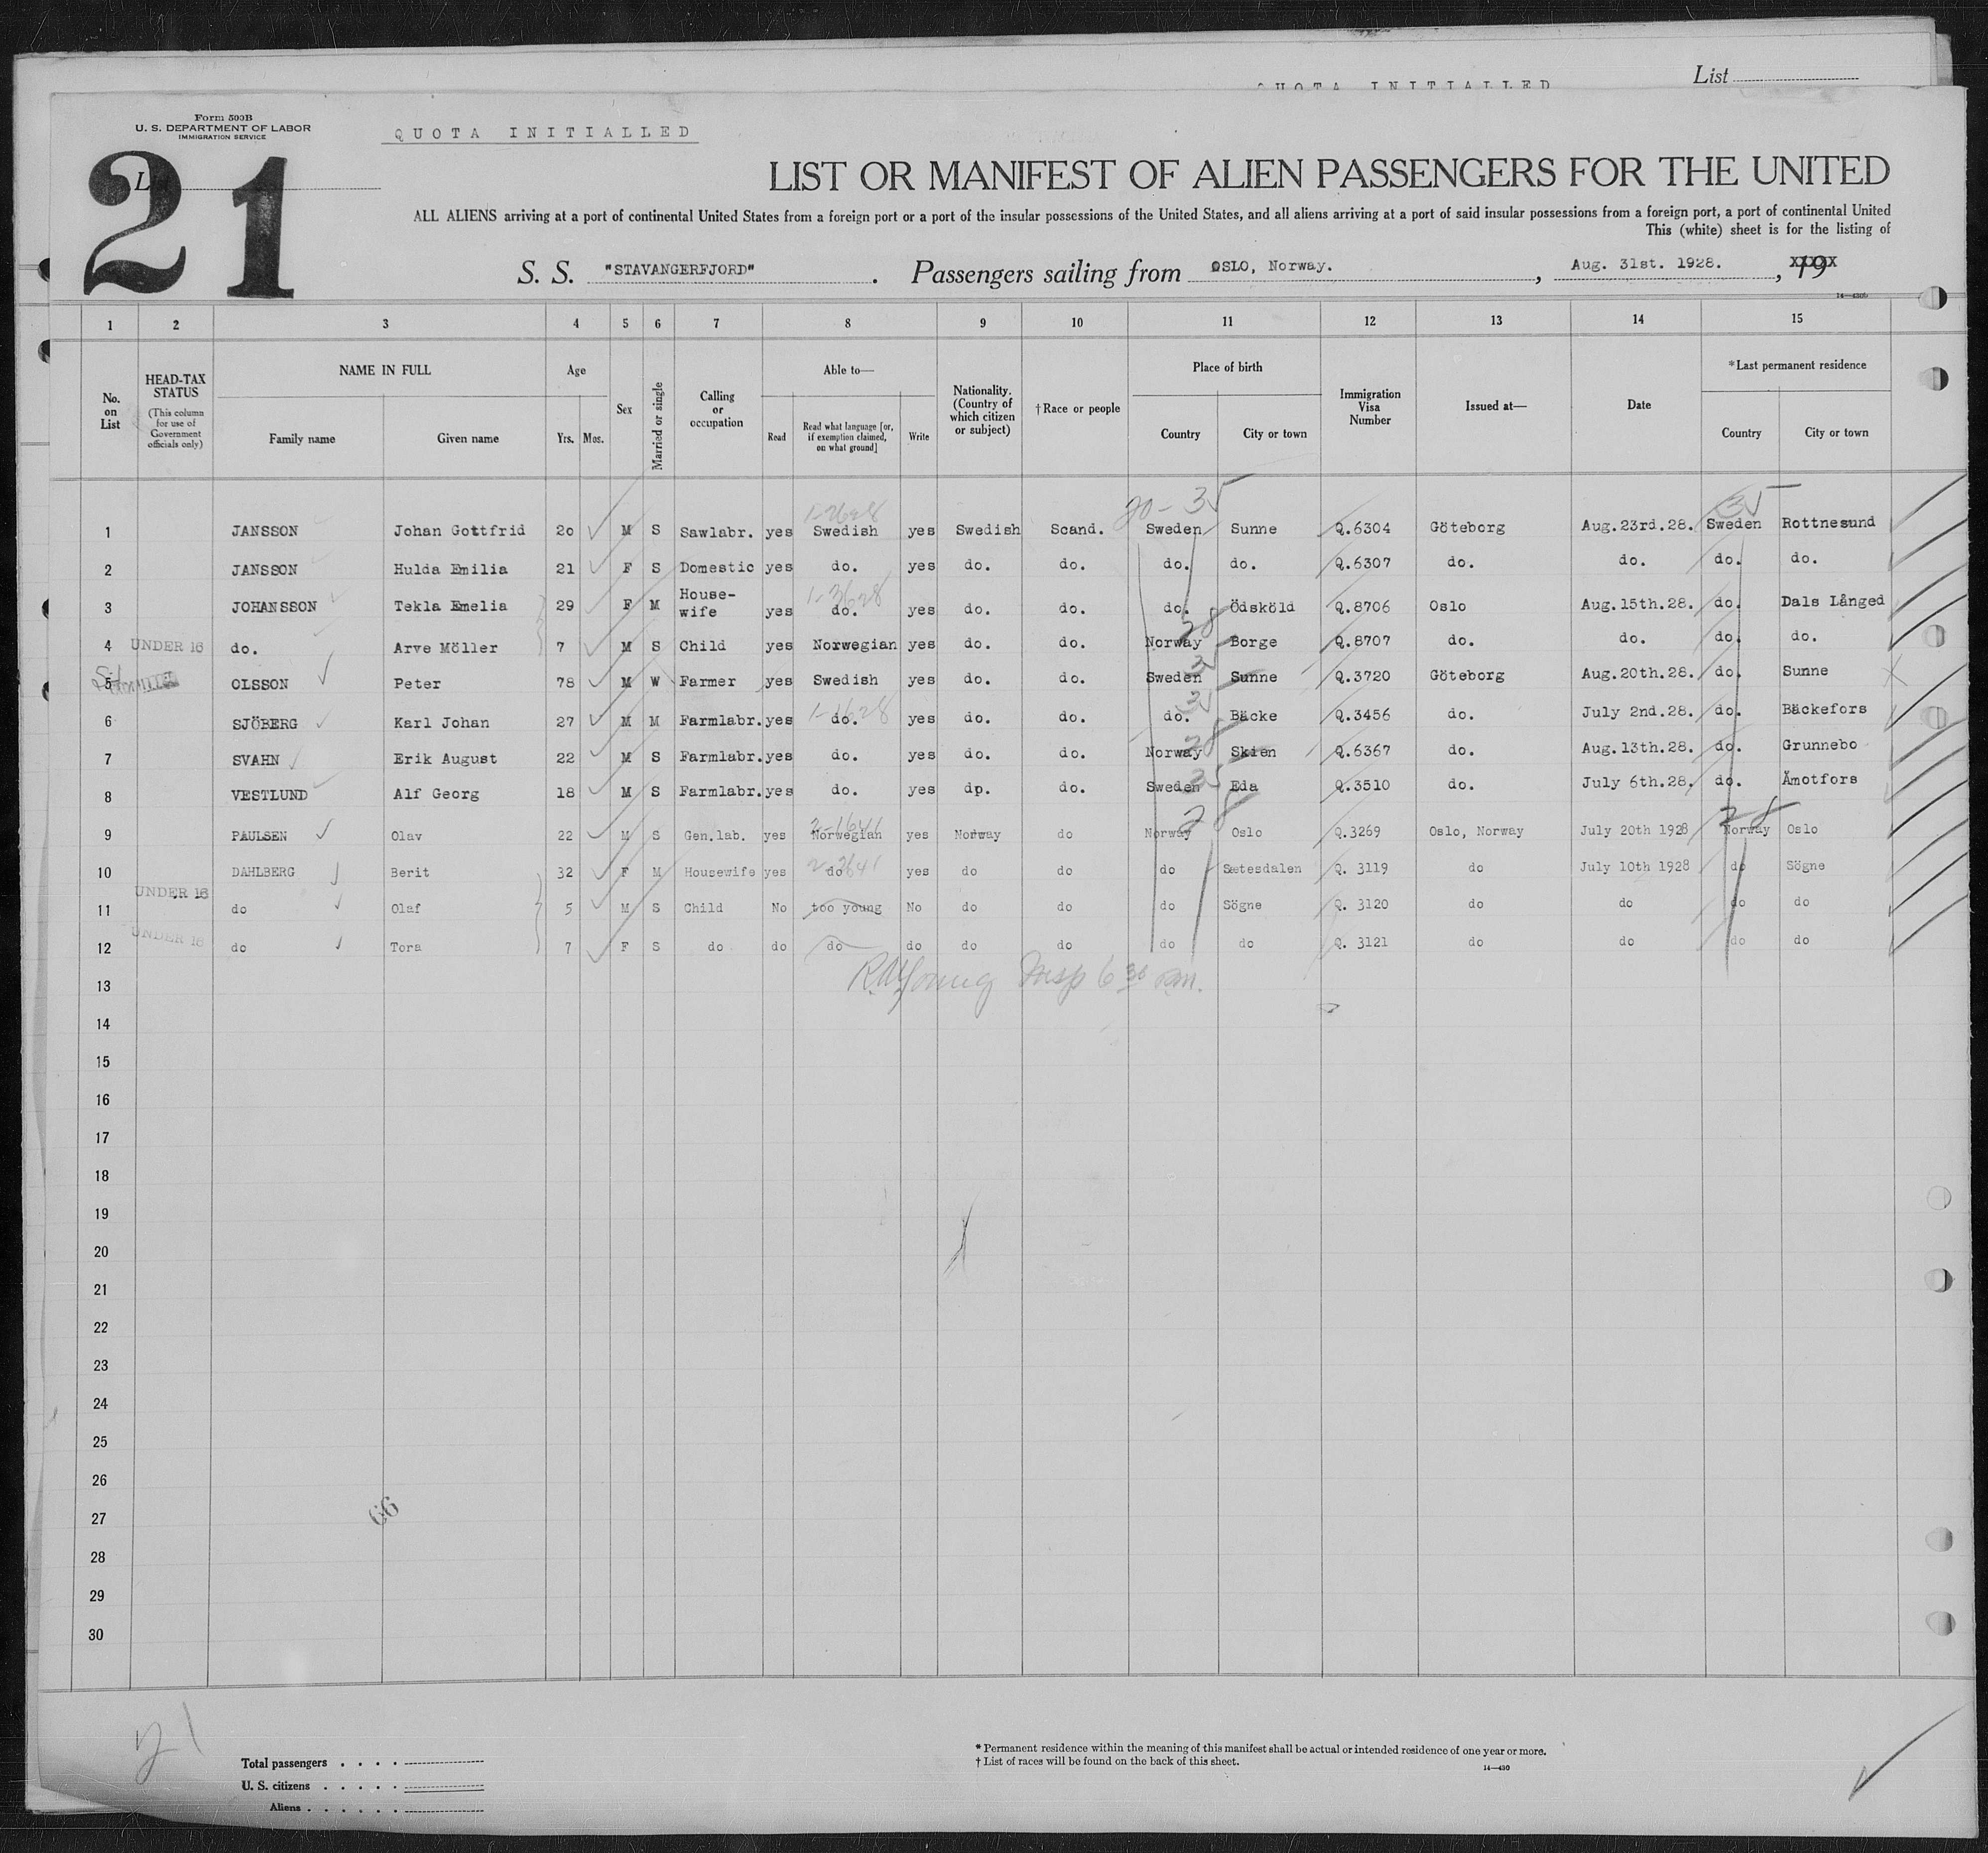 QUOTA INITIALLED
List
Form 500B
U. S. DEPARTMENT OF LABOR
IMMIGRATION SERVICE
QUOTA INITIALLED
List
21
LIST OR MANIFEST OF ALIEN PASSENGERS FOR THE UNITED
ALL ALIENS arriving at a port of continental United States from a foreign port or a port of the insular possessions of the United States, and all aliens arriving at a port of said insular possessions from a foreign port, a port of continental United
This (white) sheet is for the listing of
S. S. "STAVANGERFJORD" . Passengers sailing from OSLO, Norway. , Aug. 31st. 1928. , 19
1 2 3 4 5 6 7 8 9 10 11 12 13 14 15
No. on List
HEAD-TAX STATUS (This column for use of Government officials only)
NAME IN FULL Family name Given name
Age Yrs. Mos.
Sex
Married or single
Calling or occupation
Able to— Read Read what language [or, if exemption claimed, on what ground] Write
Nationality. (Country of which citizen or subject)
†Race or people
Place of birth Country City or town
Immigration Visa Number
Issued at—
Date
*Last permanent residence Country City or town
20-35 35
1-2628
1 JANSSON Johan Gottfrid 20 M S Sawlabr. yes Swedish yes Swedish Scand. Sweden Sunne Q.6304 Göteborg Aug.23rd.28. Sweden Rottnesund
2 JANSSON Hulda Emilia 21 F S Domestic yes do. yes do. do. do. do. Q.6307 do. do. do. do.
1-3628
3 JOHANSSON Tekla Emelia 29 F M House-wife yes do. yes do. do. do. Ödsköld Q.8706 Oslo Aug.15th.28. do. Dals Långed
28
4 UNDER 16 do. Arve Möller 7 M S Child yes Norwegian yes do. do. Norway Borge Q.8707 do. do. do. do.
35
5 OLSSON Peter 78 M W Farmer yes Swedish yes do. do. Sweden Sunne Q.3720 Göteborg Aug.20th.28. do. Sunne
1-1628 35
6 SJÖBERG Karl Johan 27 M M Farmlabr. yes do. yes do. do. do. Bäcke Q.3456 do. July 2nd.28. do. Bäckefors
28
7 SVAHN Erik August 22 M S Farmlabr. yes do. yes do. do. Norway Skien Q.6367 do. Aug.13th.28. do. Grunnebo
35
8 VESTLUND Alf Georg 18 M S Farmlabr. yes do. yes dp. do. Sweden Eda Q.3510 do. July 6th.28. do. Åmotfors
2-1641 28 28
9 PAULSEN Olav 22 M S Gen.lab. yes Norwegian yes Norway do Norway Oslo Q.3269 Oslo, Norway July 20th 1928 Norway Oslo
2-2641
10 DAHLBERG Berit 32 F M Housewife yes do yes do do do Sætesdalen Q. 3119 do July 10th 1928 do Sögne
11 UNDER 16 do Olaf 5 M S Child No too young No do do do Sögne Q. 3120 do do do do
12 UNDER 16 do Tora 7 F S do do do do do do do do Q. 3121 do do do do
Young Insp 6 30 P.M.
13
14
15
16
17
18
19
20
21
22
23
24
25
26
27
66
28
29
30
21
Total passengers . . . .
U. S. citizens . . . . .
Aliens . . . . . .
* Permanent residence within the meaning of this manifest shall be actual or intended residence of one year or more.
† List of races will be found on the back of this sheet.
14—430